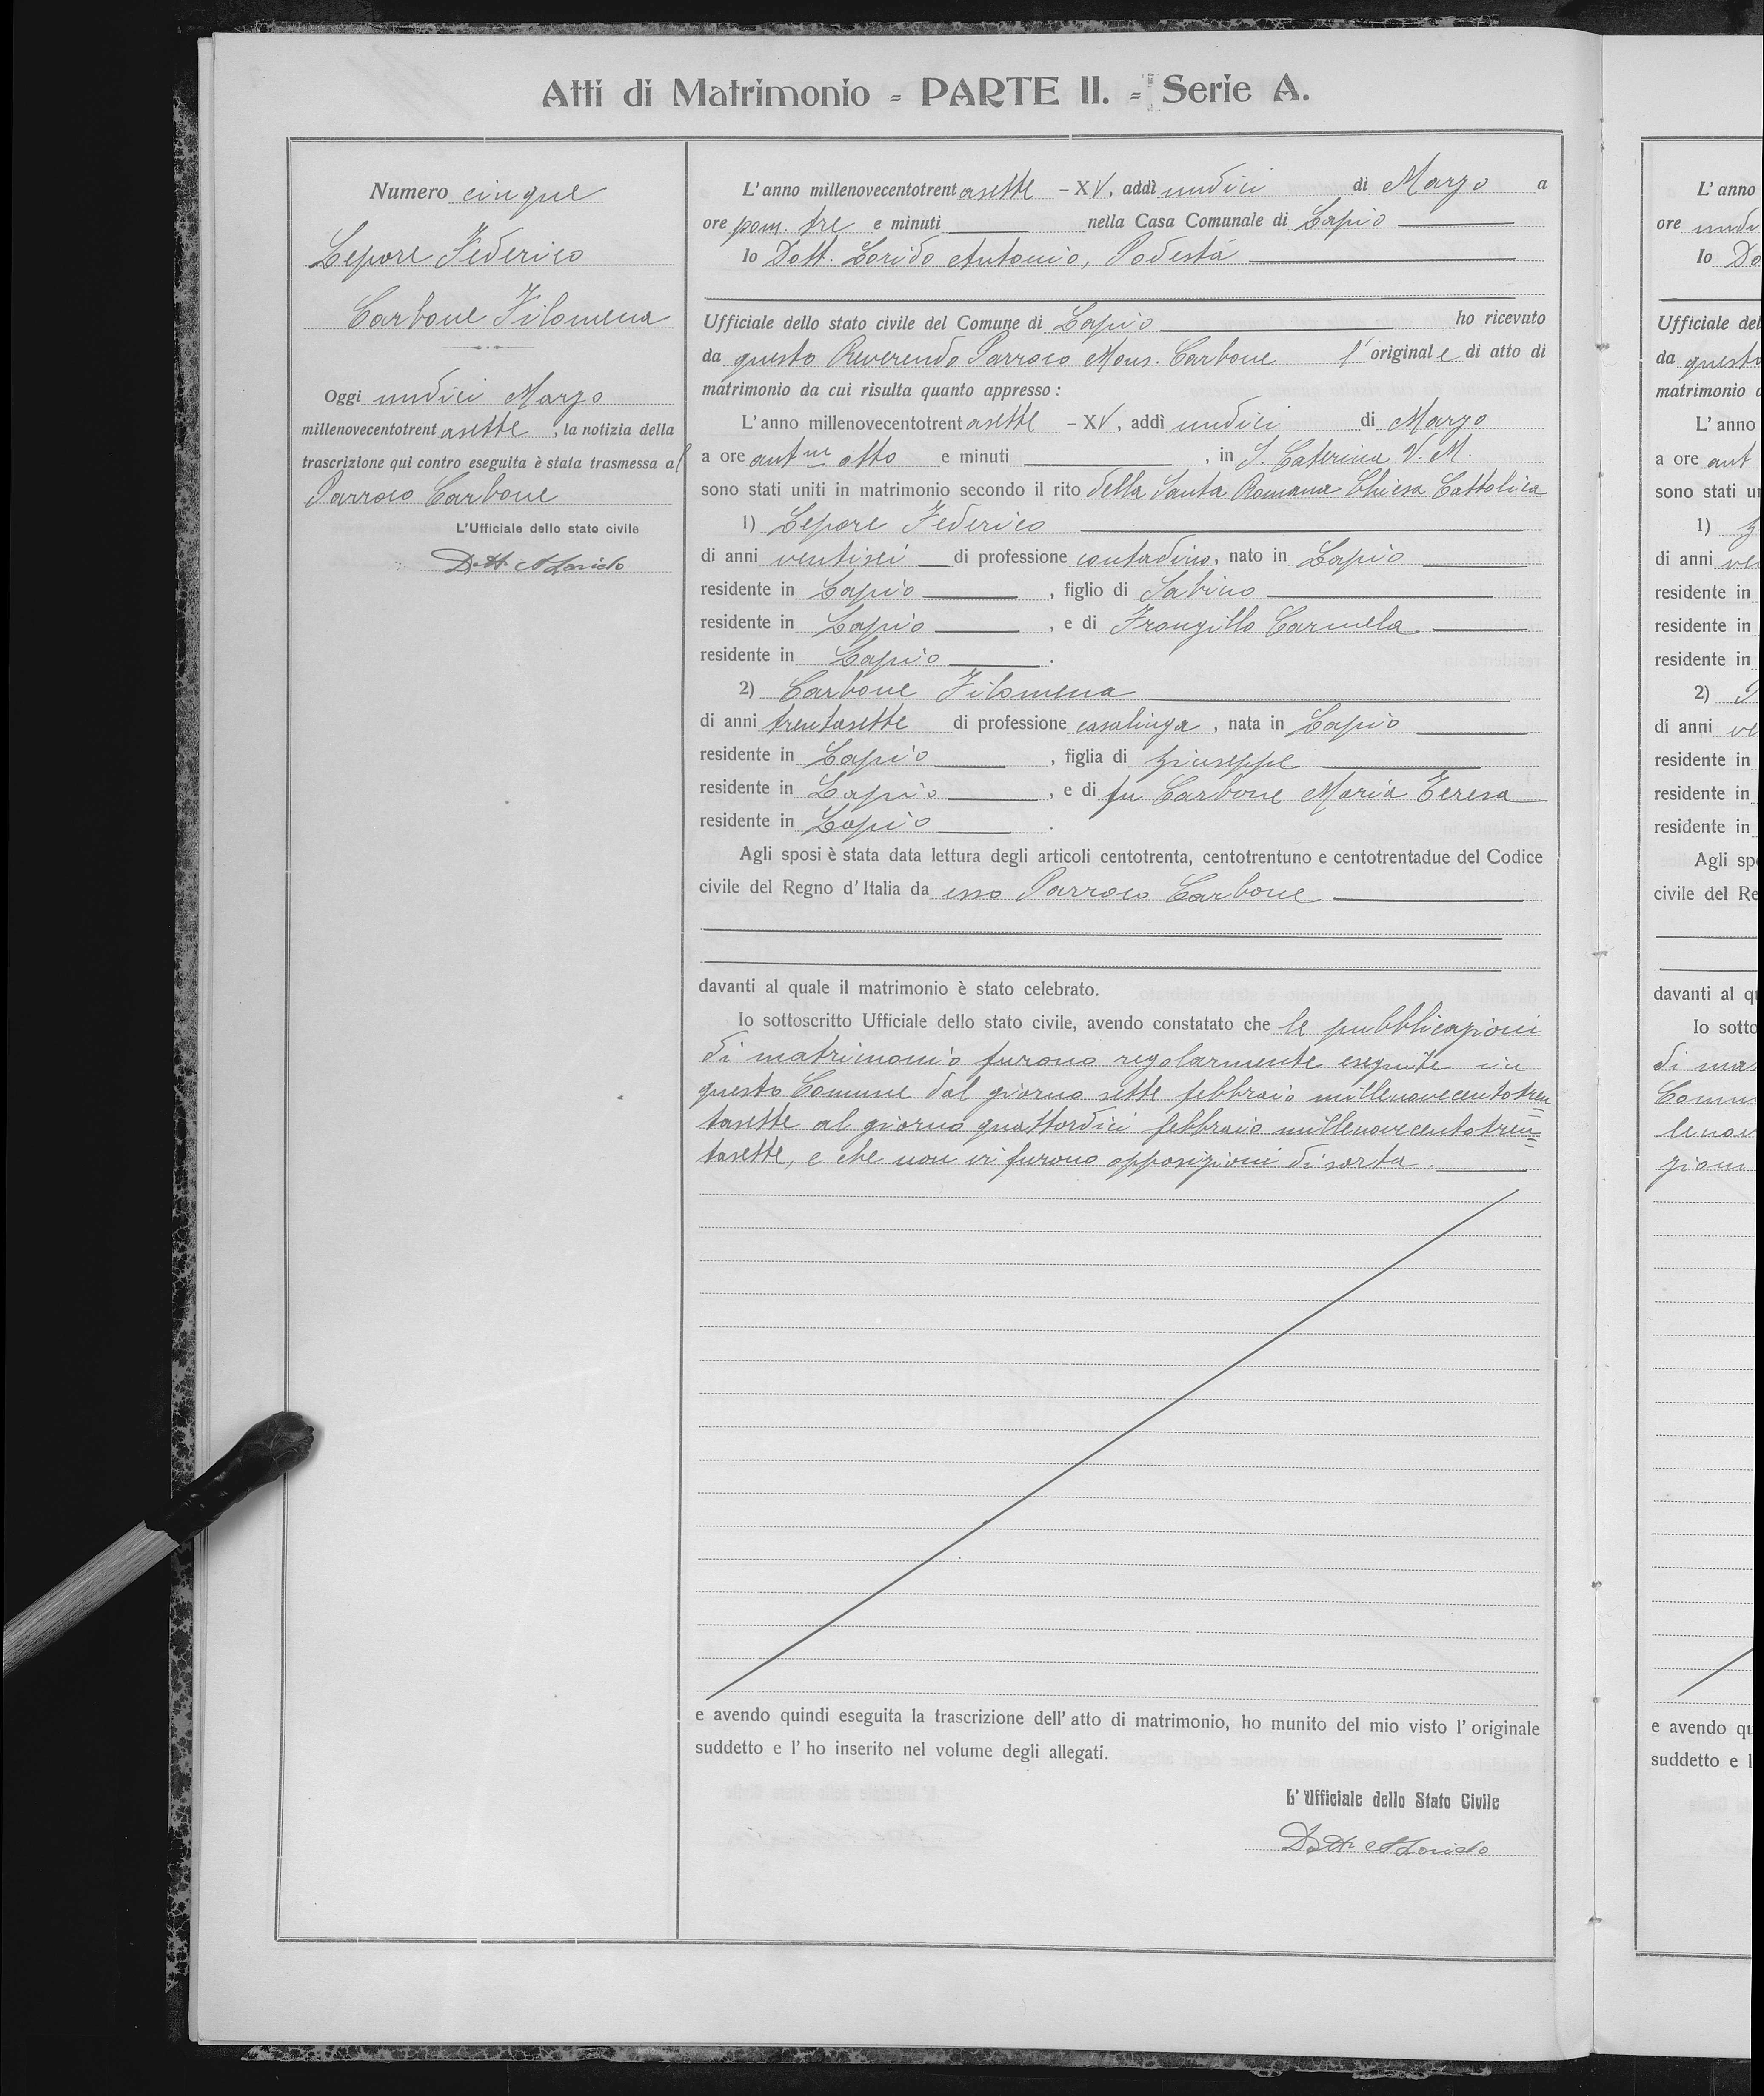 Atti di Matrimonio = PARTE II. = Serie A.
Numero cinque
Lepore Federico
Carbone Filomena
Oggi undici Marzo
millenovecentotrentasette, la notizia della
trascrizione qui contro eseguita è stata trasmessa al
Parroco Carbone
L'Ufficiale dello stato civile
Dott. A Lorido
L'anno millenovecentotrentasette - XV, addì undici di Marzo a
ore pom. tre e minuti nella Casa Comunale di Lapio
Io Dott. Lorido Antonio, Podestà
Ufficiale dello stato civile del Comune di Lapio ho ricevuto
da questo Reverendo Parroco Mons. Carbone l'originale di atto di
matrimonio da cui risulta quanto appresso:
L'anno millenovecentotrentasette - XV, addì undici di Marzo
a ore antne otto e minuti , in S. Caterina V. M.
sono stati uniti in matrimonio secondo il rito della Santa Romana Chiesa Cattolica
1) Lepore Federico
di anni ventisei di professione contadino, nato in Lapio
residente in Lapio , figlio di Sabino
residente in Lapio , e di Frongillo Carmela
residente in Lapio .
2) Carbone Filomena
di anni trentasette di professione casalinga, nata in Lapio
residente in Lapio , figlia di Giuseppe
residente in Lapio , e di fu Carbone Maria Teresa
residente in Lapio .
Agli sposi è stata data lettura degli articoli centotrenta, centotrentuno e centotrentadue del Codice
civile del Regno d'Italia da esso Parroco Carbone
davanti al quale il matrimonio è stato celebrato.
Io sottoscritto Ufficiale dello stato civile, avendo constatato che le pubblicazioni
di matrimonio furono regolarmente eseguite in
questo Comune dal giorno sette febbraio millenovecentotren=
tasette al giorno quattordici febbraio millenovecentotren=
tasette, e che non vi furono opposizioni di sorta.
e avendo quindi eseguita la trascrizione dell'atto di matrimonio, ho munito del mio visto l'originale
suddetto e l'ho inserito nel volume degli allegati.
L'Ufficiale dello Stato Civile
Dott. A Lorido
L'anno
ore undi
Io Do
Ufficiale del
da questo
matrimonio
L'anno
a ore ant
sono stati u
1)
di anni ve
residente in
residente in
residente in
2)
di anni ve
residente in
residente in
residente in
Agli spo
civile del Re
davanti al q
Io sotto
di ma
Comu
lenov
zioni
e avendo qu
suddetto e l